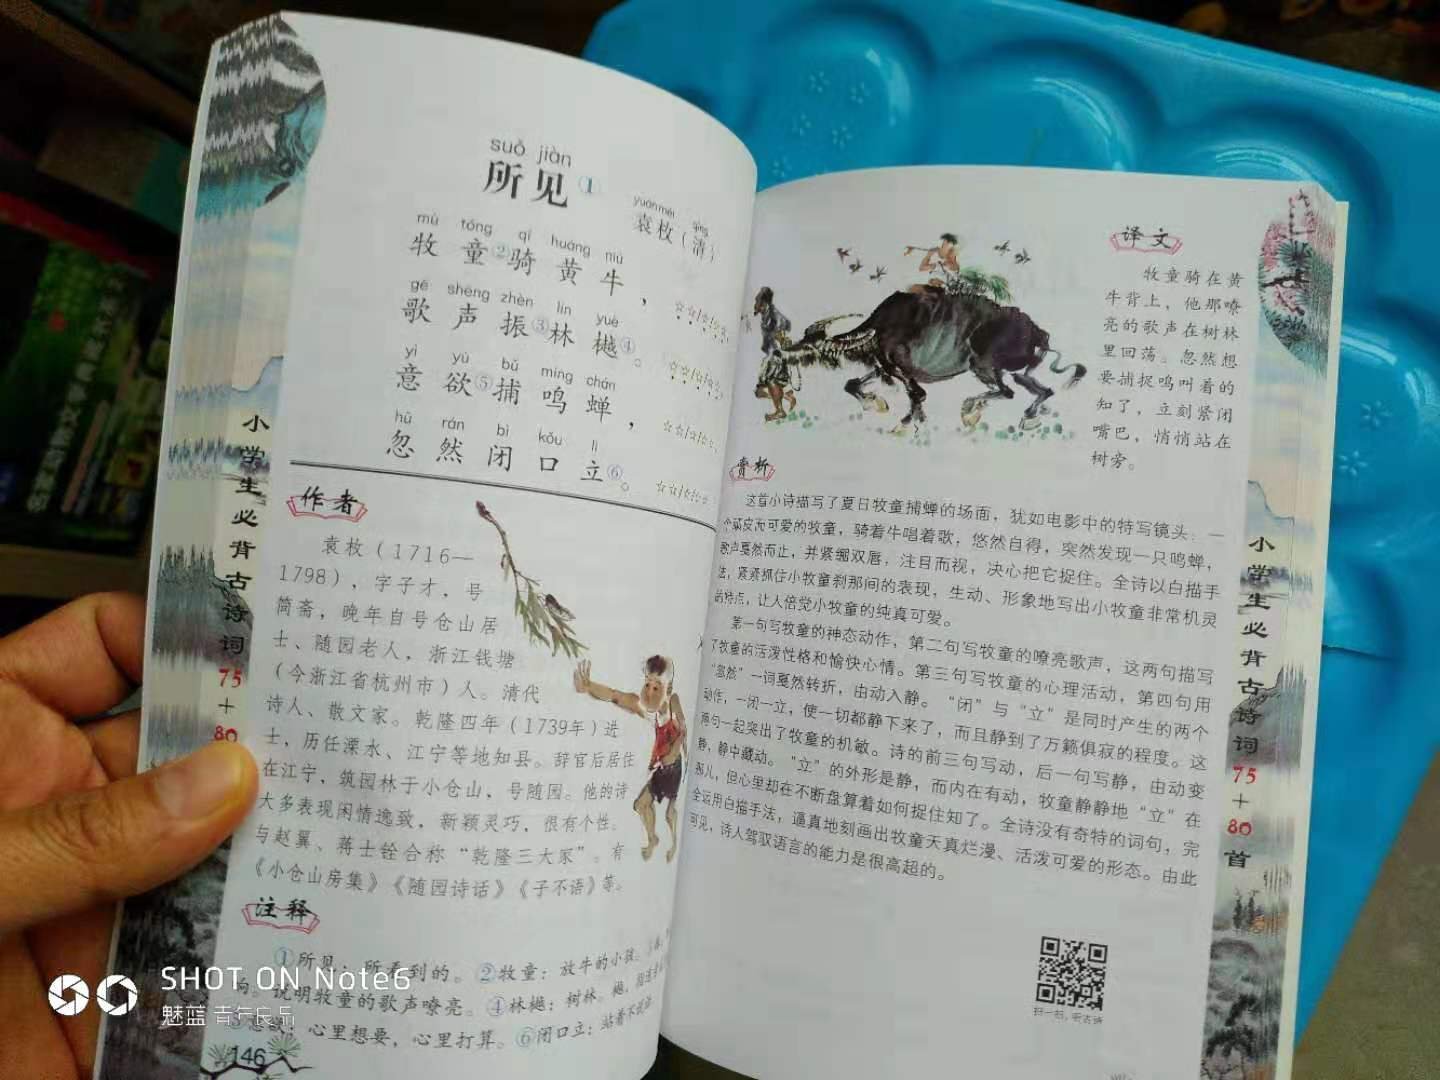 suǒ jiàn
所见①
yuán méi qīng
袁枚（清）
mù tóng qí huáng niú
牧童②骑黄牛，
gē shēng zhèn lín yuè
歌声振③林樾④。
yì yù bǔ míng chán
意欲⑤捕鸣蝉，
hū rán bì kǒu lì
忽然闭口立⑥。
作者
袁枚（1716—
1798），字子才，号
简斋，晚年自号仓山居
士、随园老人，浙江钱塘
（今浙江省杭州市）人。清代
诗人、散文家。乾隆四年（1739年）进
士，历任溧水、江宁等地知县。辞官后居住
在江宁，筑园林于小仓山，号随园。他的诗
大多表现闲情逸致，新颖灵巧，很有个性。
与赵翼、蒋士铨合称“乾隆三大家”。有
《小仓山房集》《随园诗话》《子不语》等。
注释
①所见：所看到的。②牧童：放牛的小孩。
响。说明牧童的歌声嘹亮。④林樾：树林。樾，
心里想要，心里打算。⑥闭口立：站着不说话
146
小学生必背古诗词75+80
译文
牧童骑在黄
牛背上，他那嘹
亮的歌声在树林
里回荡。忽然想
要捕捉鸣叫着的
知了，立刻紧闭
嘴巴，悄悄站在
树旁。
赏析
这首小诗描写了夏日牧童捕蝉的场面，犹如电影中的特写镜头：一
个顽皮而可爱的牧童，骑着牛唱着歌，悠然自得，突然发现一只鸣蝉，
歌声戛然而止，并紧绷双唇，注目而视，决心把它捉住。全诗以白描手
法，紧紧抓住小牧童刹那间的表现，生动、形象地写出小牧童非常机灵
的特点，让人倍觉小牧童的纯真可爱。
第一句写牧童的神态动作，第二句写牧童的嘹亮歌声，这两句描写
了牧童的活泼性格和愉快心情。第三句写牧童的心理活动，第四句用
“忽然”一词戛然转折，由动入静。“闭”与“立”是同时产生的两个
动作，一闭一立，使一切都静下来了，而且静到了万籁俱寂的程度。这
两句一起突出了牧童的机敏。诗的前三句写动，后一句写静，由动变
静，静中藏动。“立”的外形是静，而内在有动，牧童静静地“立”在
那儿，但心里却在不断盘算着如何捉住知了。全诗没有奇特的词句，完
全运用白描手法，逼真地刻画出牧童天真烂漫、活泼可爱的形态。由此
可见，诗人驾驭语言的能力是很高超的。
扫一扫，听古诗
小学生必背古诗词75+80首
SHOT ON Note6
魅蓝 青年良品